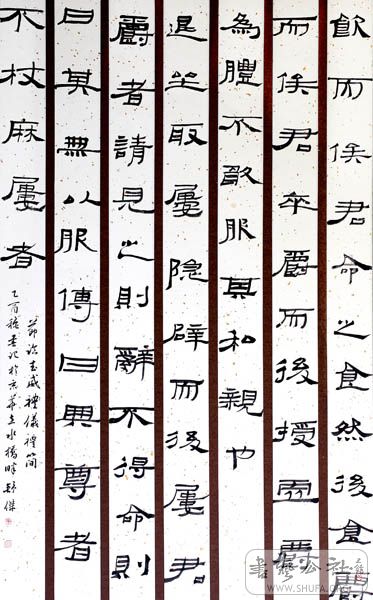 飲而俟君命之食然後食爵
而俟君卒爵而後授虛
為醴不敢服其和親也
退坐取屨隱辟而後屨君
爵者請見之則辭不得命則
曰其無以服傳曰與尊者
不杖麻屨者
節臨武威禮儀禮簡
乙酉